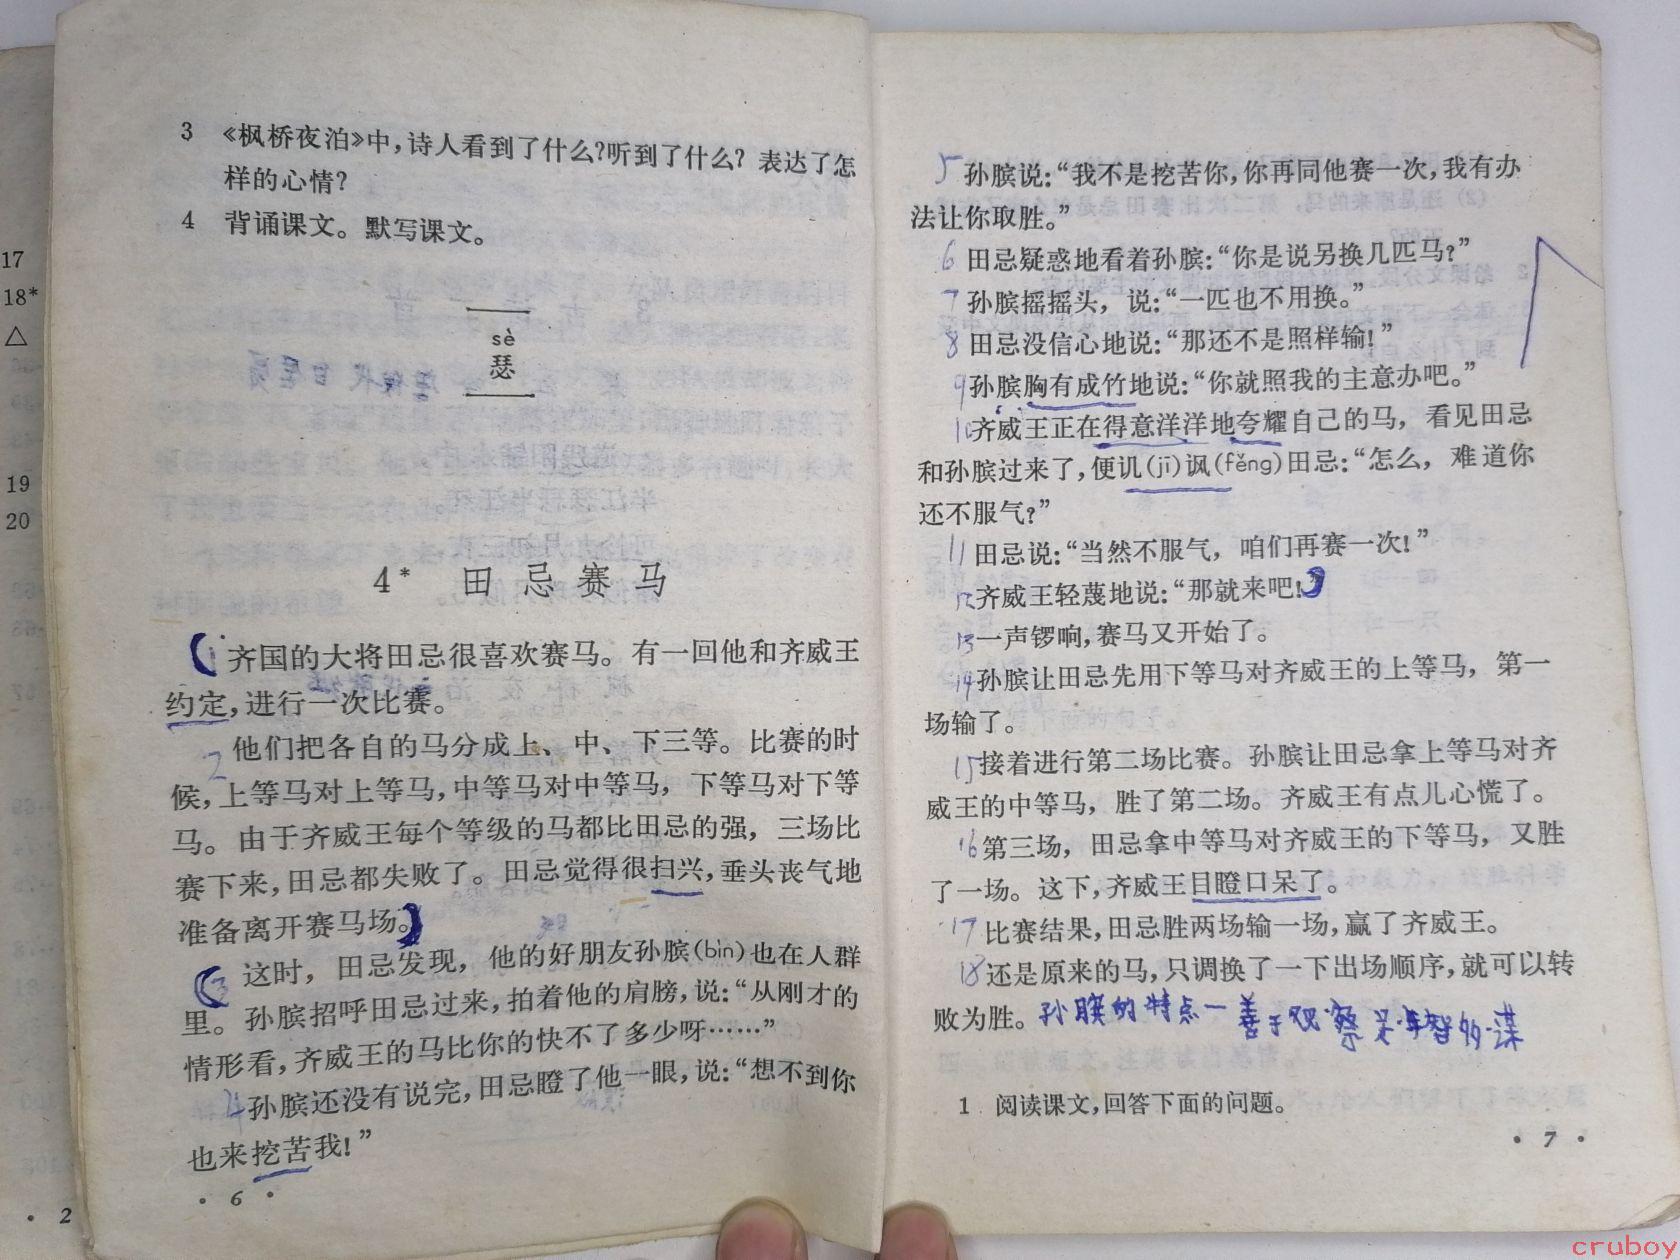 3 《枫桥夜泊》中,诗人看到了什么?听到了什么?表达了怎
样的心情?
4 背诵课文。默写课文。
sè
瑟
4* 田忌赛马
1 齐国的大将田忌很喜欢赛马。有一回他和齐威王
约定,进行一次比赛。
2 他们把各自的马分成上、中、下三等。比赛的时
候,上等马对上等马,中等马对中等马,下等马对下等
马。由于齐威王每个等级的马都比田忌的强,三场比
赛下来,田忌都失败了。田忌觉得很扫兴,垂头丧气地
准备离开赛马场。
3 这时,田忌发现,他的好朋友孙膑(bìn)也在人群
里。孙膑招呼田忌过来,拍着他的肩膀,说:“从刚才的
情形看,齐威王的马比你的快不了多少呀……”
4 孙膑还没有说完,田忌瞪了他一眼,说:“想不到你
也来挖苦我!”
· 6 ·
17
18*
△
19
20
· 2
5 孙膑说:“我不是挖苦你,你再同他赛一次,我有办
法让你取胜。”
6 田忌疑惑地看着孙膑:“你是说另换几匹马?”
7 孙膑摇摇头,说:“一匹也不用换。”
8 田忌没信心地说:“那还不是照样输!”
9 孙膑胸有成竹地说:“你就照我的主意办吧。”
10 齐威王正在得意洋洋地夸耀自己的马,看见田忌
和孙膑过来了,便讥(jī)讽(fěng)田忌:“怎么,难道你
还不服气?”
11 田忌说:“当然不服气,咱们再赛一次!”
12 齐威王轻蔑地说:“那就来吧!”
13 一声锣响,赛马又开始了。
14 孙膑让田忌先用下等马对齐威王的上等马,第一
场输了。
15 接着进行第二场比赛。孙膑让田忌拿上等马对齐
威王的中等马,胜了第二场。齐威王有点儿心慌了。
16 第三场,田忌拿中等马对齐威王的下等马,又胜
了一场。这下,齐威王目瞪口呆了。
17 比赛结果,田忌胜两场输一场,赢了齐威王。
18 还是原来的马,只调换了一下出场顺序,就可以转
败为胜。孙膑的特点一善于观察 足智多谋
1 阅读课文,回答下面的问题。
· 7 ·
cruboy